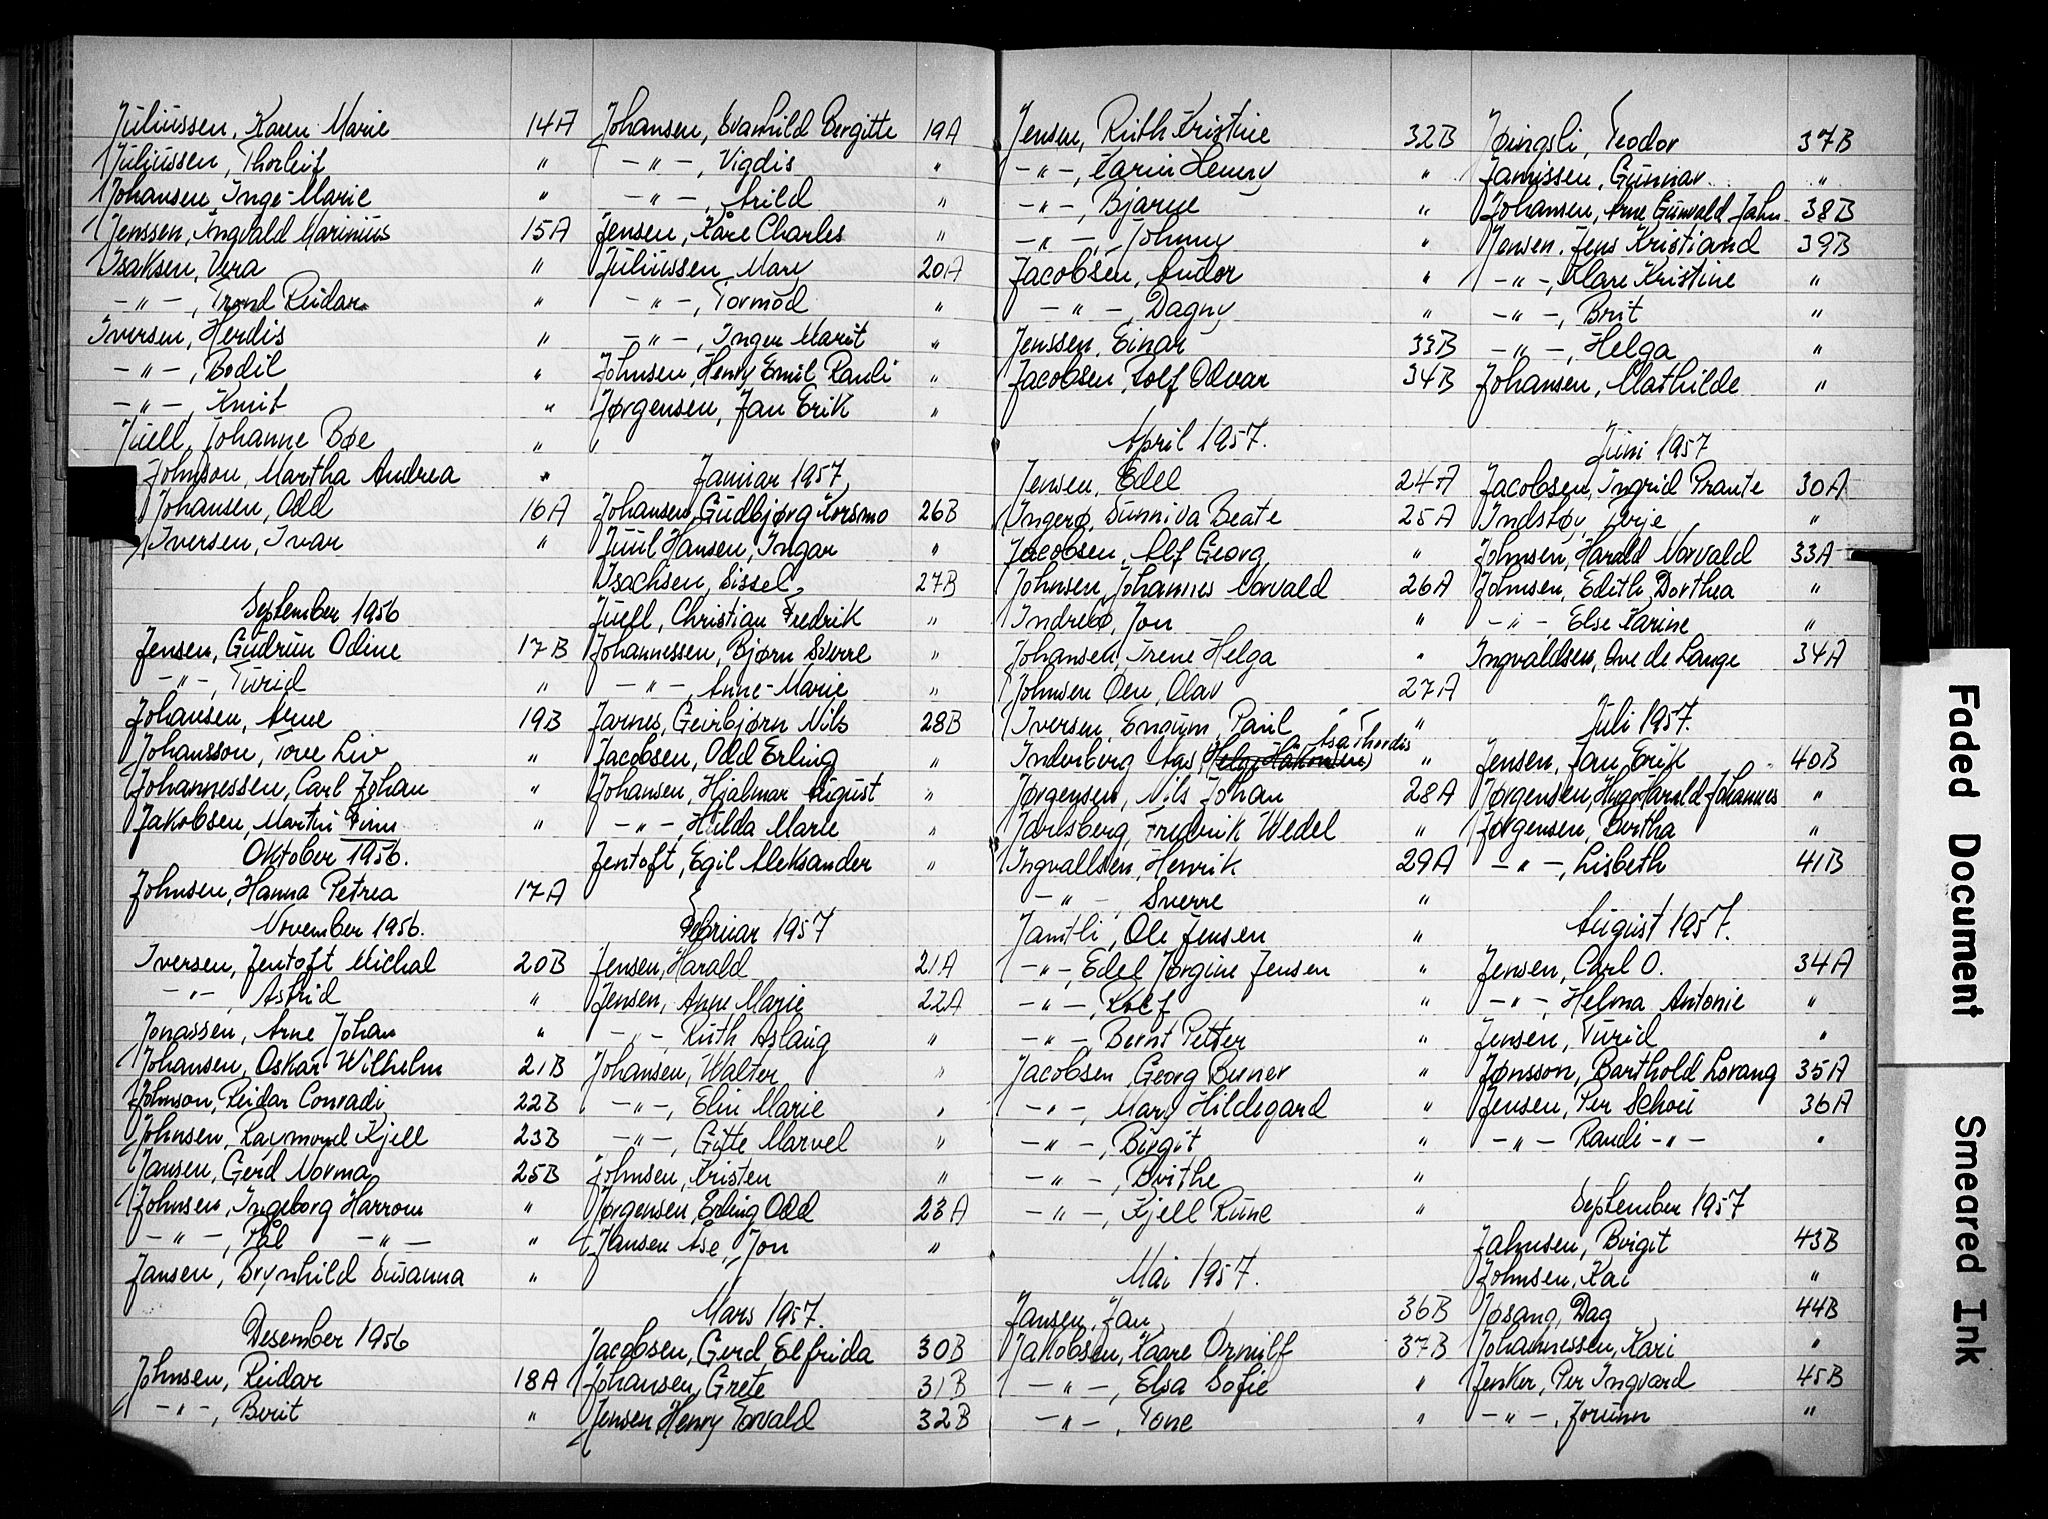 Juliussen, Karen Marie 14A
Juliussen, Thorleif "
Johansen, Inge-Marie "
Jenssen, Ingvald Marinius 15A
Isaksen, Vera "
-"-, Trond Reidar "
Iversen, Herdis "
-"-, Bodil "
-"-, Knut "
Juell, Johanne Bøe "
Johnson, Martha Andrea "
Johansen, Odd 16A
Iversen, Ivar "
September 1956
Jensen, Gudrun Odine 17B
-"-, Turid "
Johansen, Arne 19B
Johansson, Tove Liv "
Johannessen, Carl Johan "
Jakobsen, Martin Finn "
Oktober 1956.
Johnsen, Hanna Petrea 17A
November 1956.
Iversen, Jentoft Michal 20B
-"-, Astrid "
Jonassen, Arne Johan "
Johansen, Oskar Wilhelm 21B
Johnson, Reidar Conradi 22B
Johnsen, Raymond Kjell 23B
Jansen, Gerd Norma 25B
Johnsen, Ingeborg Harrom "
-"-, Pål -"- "
Jansen, Brynhild Susanna "
Desember 1956
Johnsen, Reidar 18A
-"-, Berit "
Johansen, Svanhild Bergitte 19A
-"-, Vigdis "
-"-, Arild "
Jensen, Kåre Charles "
Juliussen, Mary 20A
-"-, Tormod "
-"-, Inger Marit "
Johnsen, Henry Emil Randi "
Jørgensen, Jan Erik "
Januar 1957
Johansen, Gudbjørg Korsmo 26B
Juul Hansen, Ingar "
Isachsen, Sissel 27B
Juell, Christian Fredrik "
Johannessen, Bjørn Sverre "
-"-, Anne-Marie "
Jarnes, Geirbjørn Nils 28B
Jacobsen, Odd Erling "
Johansen, Hjalmar August "
-"-, Hulda Marie "
Jentoft, Egil Aleksander "
Februar 1957
Jensen, Harald 21A
Jensen, Anne Marie 22A
-"-, Ruth Aslaug "
Johansen, Walter "
-"-, Elin Marie "
-"-, Gitte Marvel "
Johnsen, Kristen "
Jørgensen, Erling Odd 23A
Jansen Åse, Jon "
Mars 1957.
Jacobsen, Gerd Elfrida 30B
Johansen, Grete 31B
Jensen Henry Torvald 32B
Jensen, Ruth Kristine 32B
-"-, Karin Henny "
-"-, Bjarne "
-"-, Johnny "
Jacobsen, Andor "
-"-, Dagny "
Jenssen, Einar 33B
Jacobsen, Rolf Odvar 34B
April 1957.
Jensen, Edel 24A
Ingerø, Sunniva Beate 25A
Jacobsen, Alf Georg "
Johnsen, Johannes Norvald 26A
Indrebø, Jon "
Johansen, Irene Helga "
Johnsen Øen, Olav 27A
Iversen, Engum, Paul "
Åsa Thordis
Inderberg Aas, (Helge Håkonsen) "
Jørgensen, Nils Johan 28A
Jarlsberg, Fredrik Wedel "
Ingvallsen, Henrik 29A
-"-, Sverre "
Jamtli, Ole Jensen "
-"-, Edel Jørgine Jensen "
-"-, Rolf "
-"-, Bernt Petter "
Jacobsen, Georg Berner "
-"-, Mary Hildegard "
-"-, Birgit "
-"-, Birthe "
-"-, Kjell Rune "
Mai 1957.
Jansen, Jan 36B
Jakobsen, Kaare Ornulf 37B
-"-, Elsa Sofie "
-"-, Tone "
Jøingsli, Teodor 37B
Jamissen, Gunnar "
Johansen, Arne Gunvald John 38B
Jensen, Jens Kristiand 39B
-"-, Klare Kristine "
-"-, Brit "
-"-, Helga "
Johansen, Mathilde "
Juni 1957
Jacobsen, Ingrid Prante 30A
Indstøy, Terje "
Johnsen, Harald Norvald 33A
Johnsen, Edith Dorthea "
-"-, Else Karine "
Ingvaldsen, Ove de Lange 34A
Juli 1957.
Jensen, Jan Erik 40B
Jørgensen, Hugo Harald Johannes "
Jørgensen, Bertha "
-"-, Lisbeth 41B
August 1957.
Jensen, Carl O. 34A
-"-, Helma Antonie "
Jensen, Turid "
Jønsson, Barthold Lorang 35A
Jensen, Per Schou 36A
-"- Randi -"- "
September 1957
Jahnsen, Birgit 43B
Johnsen, Kai "
Jøsang, Dag 44B
Johannessen, Kari "
Jenker, Per Ingvard 45B
-"-, Jorunn "
Faded Document
Smeared Ink